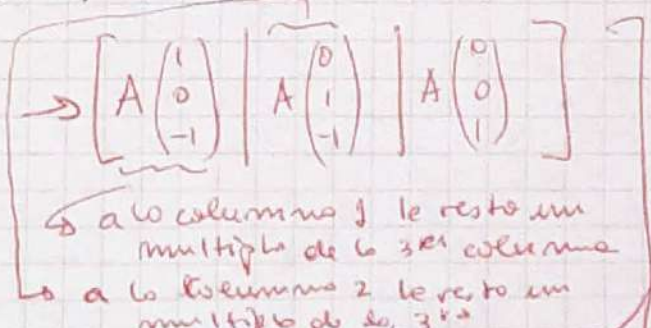 → [ A (1 0 -1) | A (0 1 -1) | A (0 0 1) ]
↳ a la columna 1 le resto un
multiplo de la 3era columna
↳ a la columna 2 le resto un
multiplo de la 3era